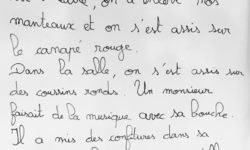 on a encore nos
manteaux et on s'est assis sur
le canapé rouge.
Dans la salle, on s'est assis sur
des coussins ronds. Un monsieur
faisait de la musique avec sa bouche.
Il a mis des confitures dans sa